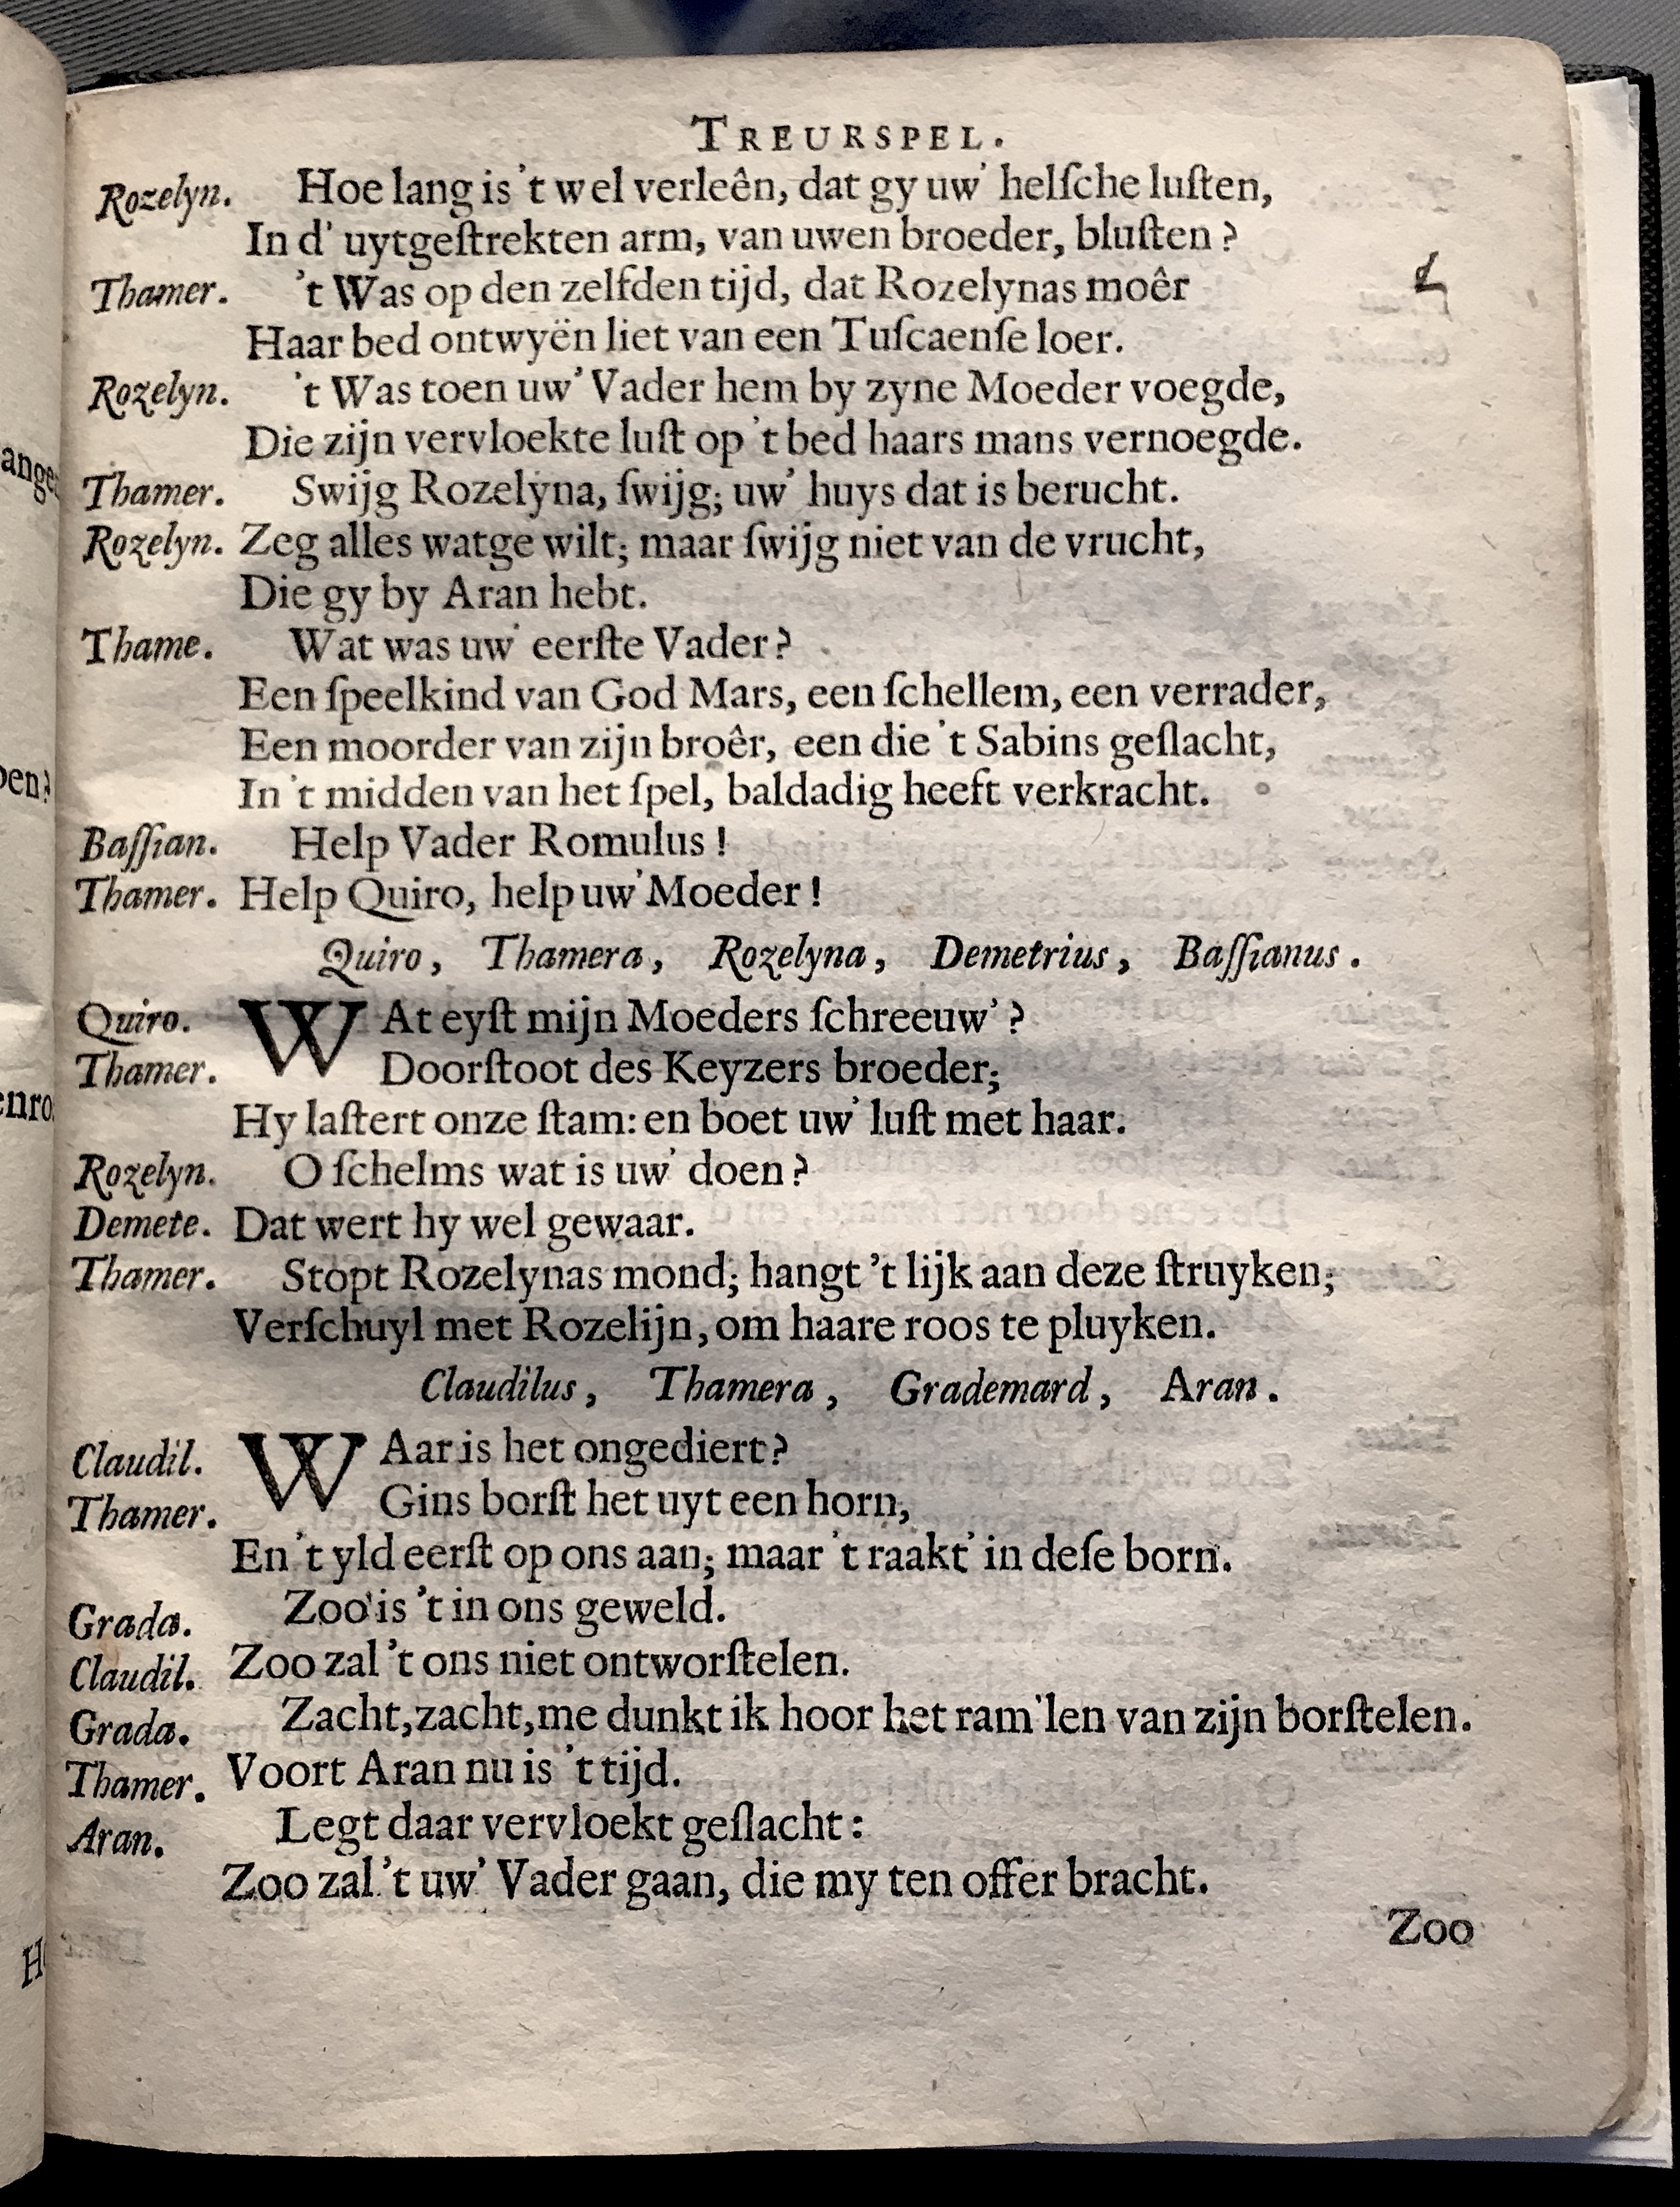 TREURSPEL.
Rozelyn. Hoe lang is 't wel verleên, dat gy uw' helſche luſten,
In d' uytgeſtrekten arm, van uwen broeder, bluſten?
Thamer. 't Was op den zelfden tijd, dat Rozelynas moêr
Haar bed ontwyën liet van een Tuſcaenſe loer.
Rozelyn. 't Was toen uw' Vader hem by zyne Moeder voegde,
Die zijn vervloekte luſt op 't bed haars mans vernoegde.
Thamer. Swijg Rozelyna, ſwijg; uw' huys dat is berucht.
Rozelyn. Zeg alles watge wilt; maar ſwijg niet van de vrucht,
Die gy by Aran hebt.
Thame. Wat was uw' eerſte Vader?
Een ſpeelkind van God Mars, een ſchellem, een verrader,
Een moorder van zijn broêr, een die 't Sabins geſlacht,
In 't midden van het ſpel, baldadig heeft verkracht.
Baſſian. Help Vader Romulus!
Thamer. Help Quiro, help uw' Moeder!
Quiro, Thamera, Rozelyna, Demetrius, Baſſianus.
Quiro. WAt eyſt mijn Moeders ſchreeuw'?
Thamer. Doorſtoot des Keyzers broeder;
Hy laſtert onze ſtam: en boet uw' luſt met haar.
Rozelyn. O ſchelms wat is uw' doen?
Demete. Dat wert hy wel gewaar.
Thamer. Stopt Rozelynas mond; hangt 't lijk aan deze ſtruyken;
Verſchuyl met Rozelijn, om haare roos te pluyken.
Claudilus, Thamera, Grademard, Aran.
Claudil. WAar is het ongediert?
Thamer. Gins borſt het uyt een horn,
En 't yld eerſt op ons aan; maar 't raakt' in deſe born.
Grada. Zoo is 't in ons geweld.
Claudil. Zoo zal 't ons niet ontworſtelen.
Grada. Zacht, zacht, me dunkt ik hoor het ram'len van zijn borſtelen.
Thamer. Voort Aran nu is 't tijd.
Aran. Legt daar vervloekt geſlacht:
Zoo zal 't uw' Vader gaan, die my ten offer bracht.
Zoo